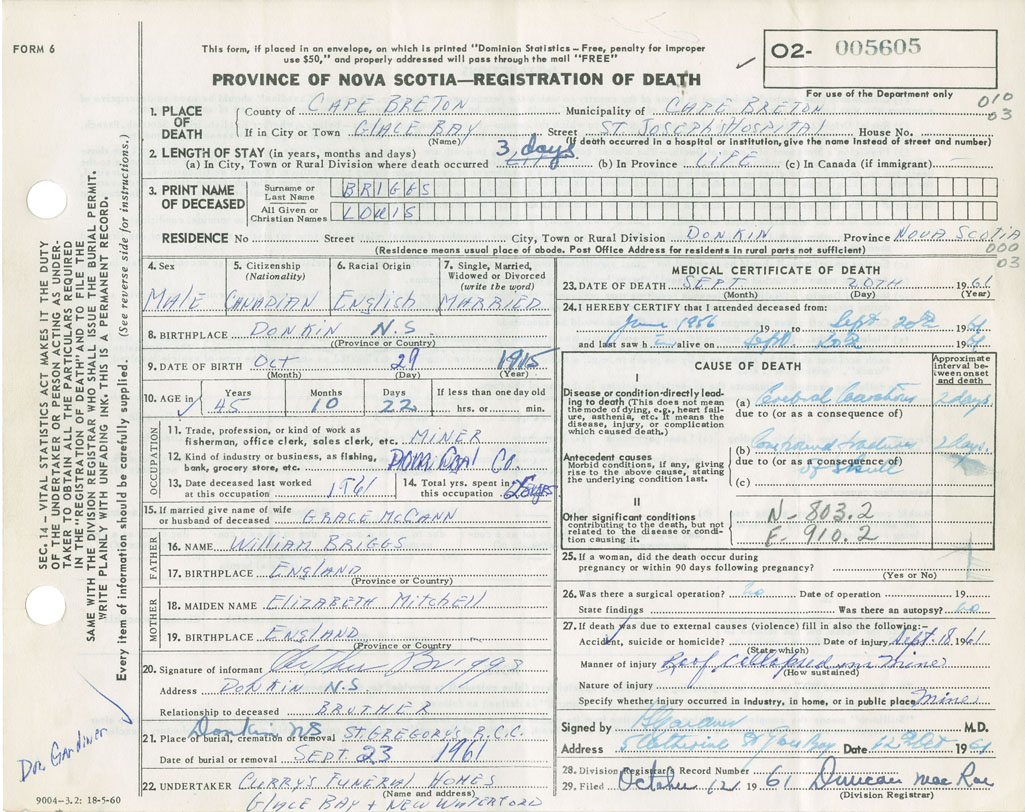 FORM 6
This form, if placed in an envelope, on which is printed "Dominion Statistics – Free, penalty for improper
use $50," and properly addressed will pass through the mail "FREE"
PROVINCE OF NOVA SCOTIA—REGISTRATION OF DEATH
O2- 005605
For use of the Department only
010
03
1. PLACE OF DEATH
County of CAPE BRETON Municipality of CAPE BRETON
If in City or Town GLACE BAY Street ST JOSEPH'S HOSPITAL House No.
(Name) (If death occurred in a hospital or institution, give the name instead of street and number)
2. LENGTH OF STAY (in years, months and days)
(a) In City, Town or Rural Division where death occurred 3 days (b) In Province LIFE (c) In Canada (if immigrant)
3. PRINT NAME OF DECEASED
Surname or Last Name BRIGGS
All Given or Christian Names LOUIS
RESIDENCE No Street City, Town or Rural Division DONKIN Province NOVA SCOTIA
(Residence means usual place of abode. Post Office Address for residents in rural parts not sufficient)
000
03
4. Sex MALE
5. Citizenship (Nationality) CANADIAN
6. Racial Origin English
7. Single, Married, Widowed or Divorced (write the word) MARRIED
8. BIRTHPLACE DONKIN N.S
(Province or Country)
9. DATE OF BIRTH Oct 29 1915
(Month) (Day) (Year)
10. AGE in Years Months Days If less than one day old
45 10 22 hrs. or min.
OCCUPATION
11. Trade, profession, or kind of work as
fisherman, office clerk, sales clerk, etc. MINER
12. Kind of industry or business, as fishing,
bank, grocery store, etc. DOM. Coal Co.
13. Date deceased last worked
at this occupation 1961
14. Total yrs. spent in
this occupation 25 yrs
15. If married give name of wife
or husband of deceased GRACE McCANN
FATHER
16. NAME William BRIGGS
17. BIRTHPLACE ENGLAND
(Province or Country)
MOTHER
18. MAIDEN NAME ELIZABETH Mitchell
19. BIRTHPLACE ENGLAND
(Province or Country)
20. Signature of informant Arthur Briggs
Address DONKIN N.S
Relationship to deceased BROTHER
21. Place of burial, cremation or removal Donkin NS ST GREGORY'S R.C.C.
Date of burial or removal SEPT. 23 1961
22. UNDERTAKER CURRY'S FUNERAL HOMES
(Name and address)
GLACE BAY + NEW WATERFORD
MEDICAL CERTIFICATE OF DEATH
23. DATE OF DEATH SEPT 20TH 1961
(Month) (Day) (Year)
24. I HEREBY CERTIFY that I attended deceased from:
June 1956 19 to Sept 20th 1961
and last saw h alive on Sept 20th 1961
CAUSE OF DEATH
Approximate interval between onset and death
I
Disease or condition directly leading to death (This does not mean
the mode of dying, e.g., heart failure, asthenia, etc. It means the
disease, injury, or complication
which caused death.)
(a) Cerebral 2 days
due to (or as a consequence of)
Antecedent causes
Morbid conditions, if any, giving
rise to the above cause, stating
the underlying condition last.
(b) Compound fracture 2 days.
due to (or as a consequence of)
of skull
(c)
II
Other significant conditions
contributing to the death, but not
related to the disease or condition causing it.
N-803.2
E-910.2
25. If a woman, did the death occur during
pregnancy or within 90 days following pregnancy?
(Yes or No)
26. Was there a surgical operation? no Date of operation 19
State findings Was there an autopsy? no
27. If death was due to external causes (violence) fill in also the following:-
Accident, suicide or homicide? Date of injury Sept. 18 1961
(State which)
Manner of injury Roof Collapsed in Mine
(How sustained)
Nature of injury
Specify whether injury occurred in Industry, in home, or in public place Mine
Signed by M.D.
Address Glace Bay Date 12 Oct 1961
28. Division Registrar's Record Number
29. Filed October 12 1961 Duncan MacRae
(Division Registrar)
SEC. 14 – VITAL STATISTICS ACT MAKES IT THE DUTY
OF THE UNDERTAKER OR PERSON ACTING AS UNDERTAKER TO OBTAIN ALL THE PARTICULARS REQUIRED
IN THE "REGISTRATION OF DEATH" AND TO FILE THE
SAME WITH THE DIVISION REGISTRAR WHO SHALL ISSUE THE BURIAL PERMIT.
WRITE PLAINLY WITH UNFADING INK. THIS IS A PERMANENT RECORD.
Every item of information should be carefully supplied. (See reverse side for instructions.)
Doc Gardiner
9004-3.2: 18-5-60